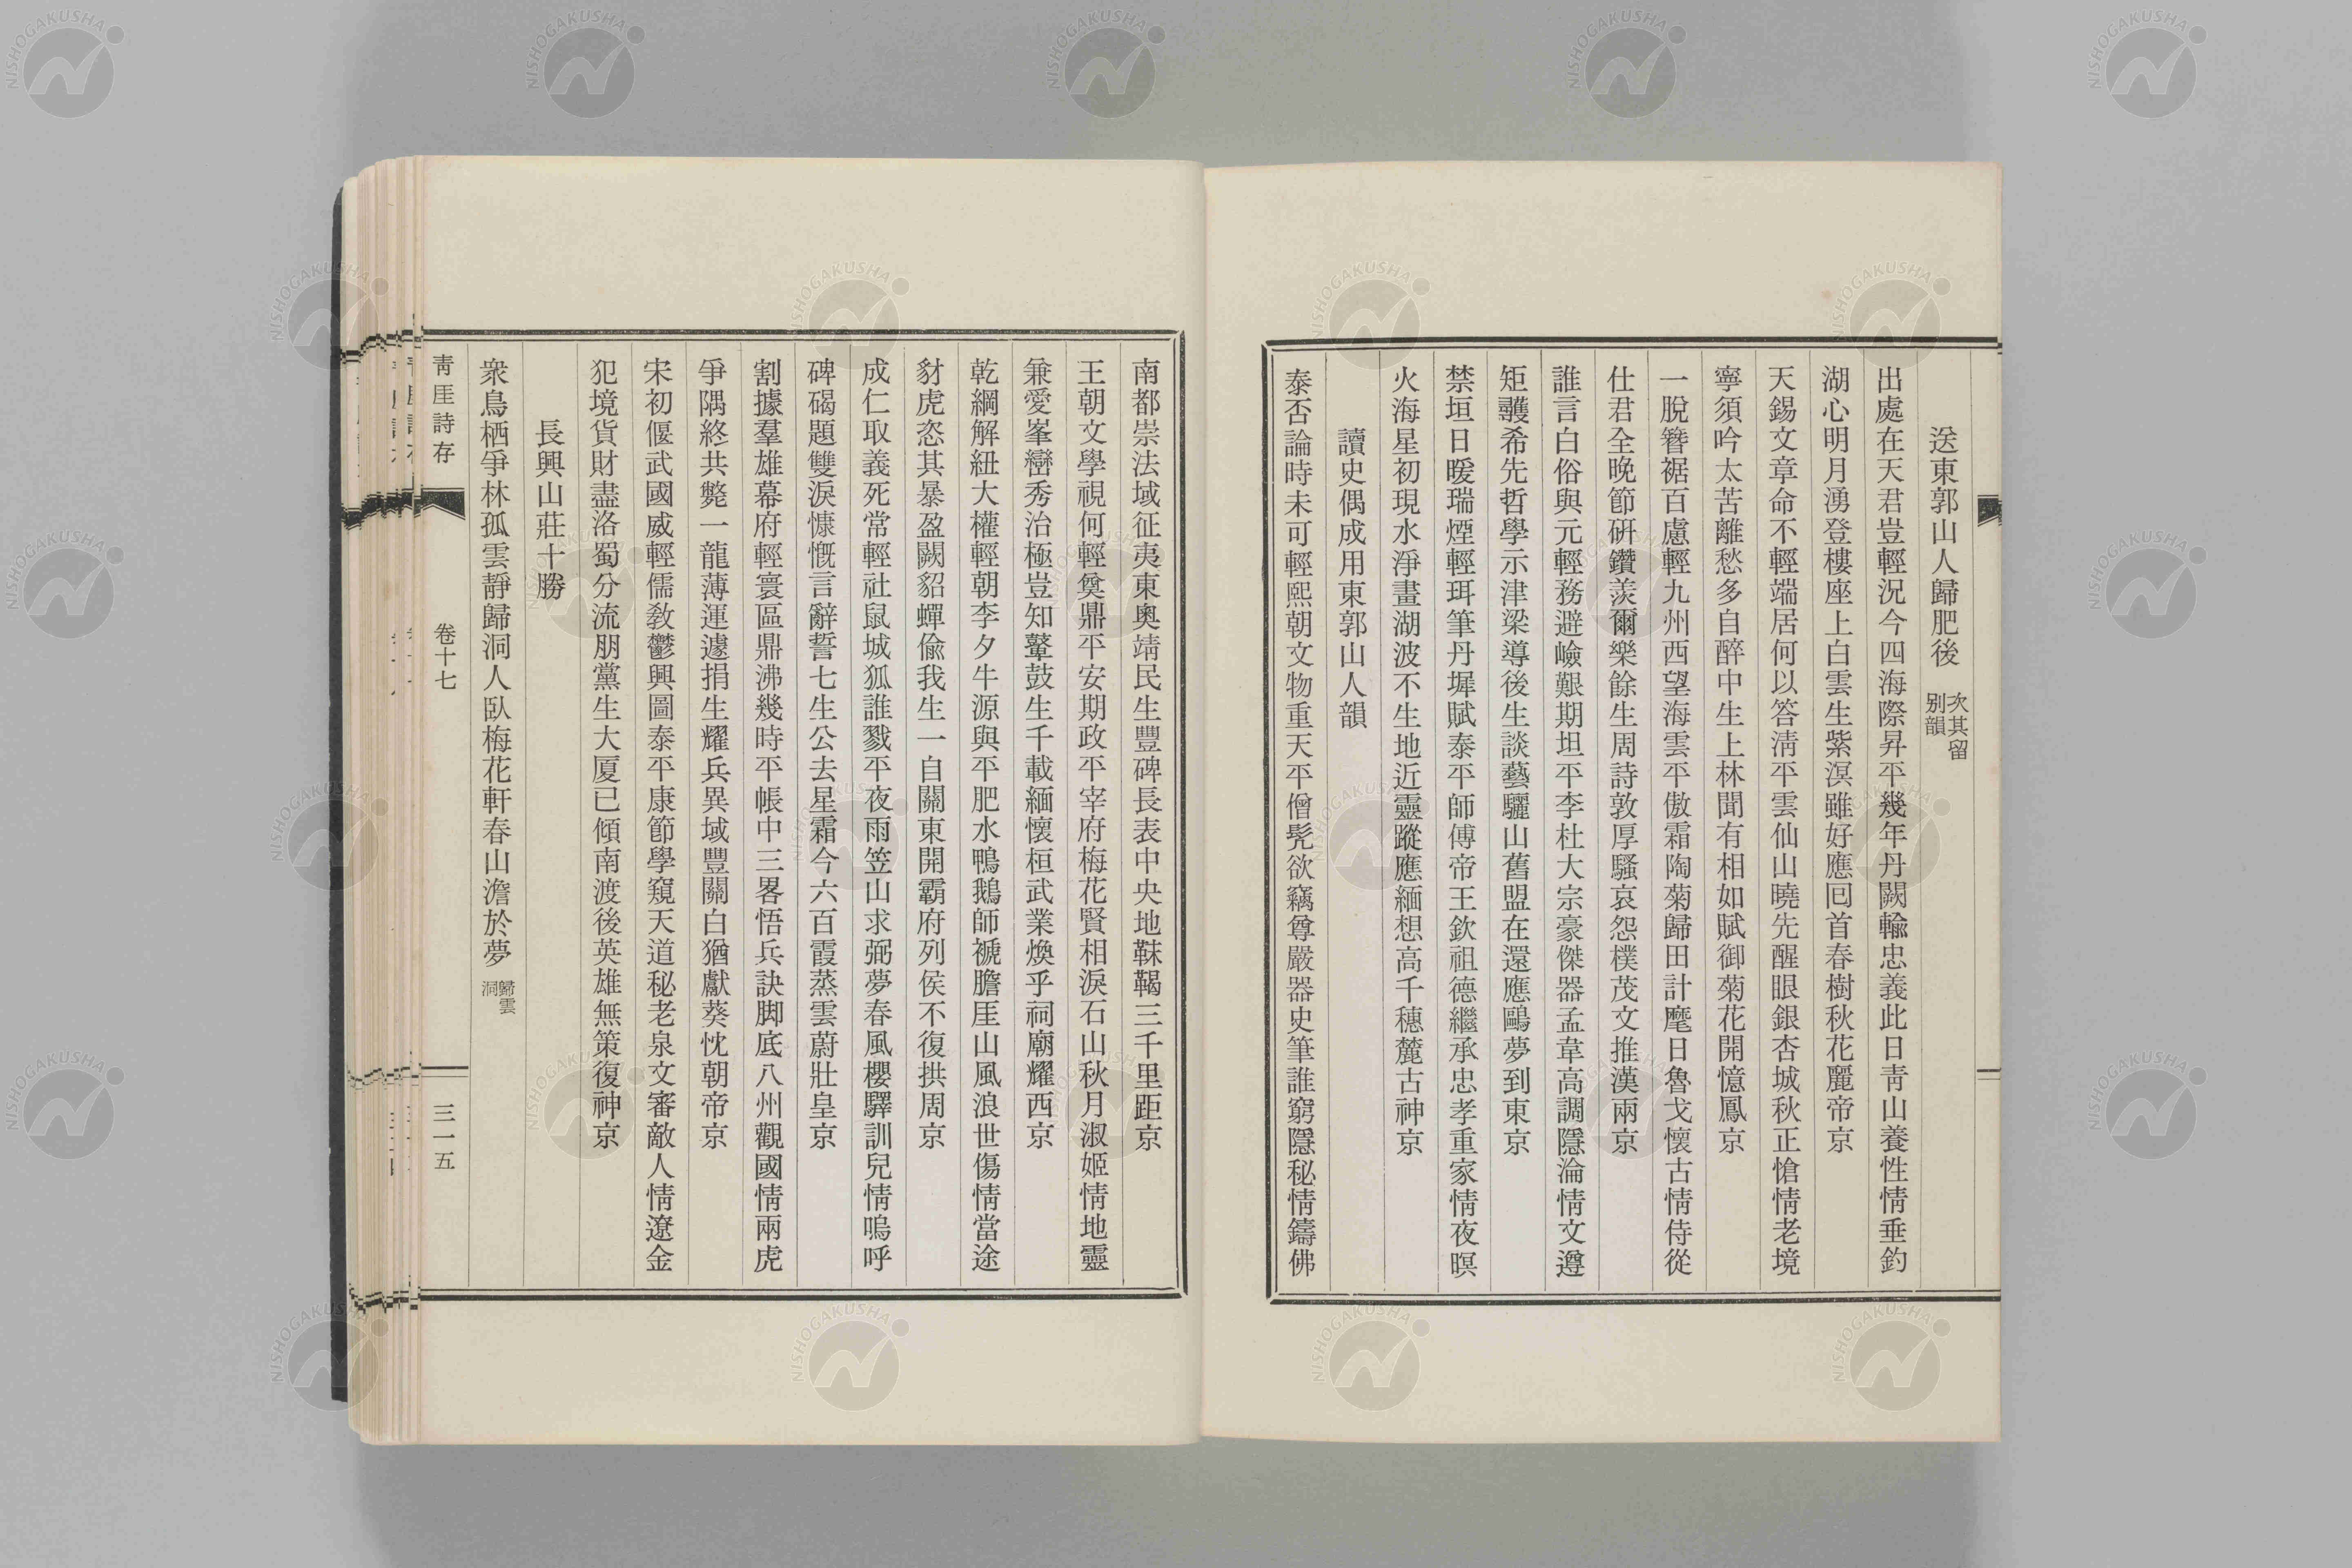 送東郭山人歸肥後 次其留別韻
出處在天君豈輕況今四海際昇平幾年丹闕輸忠義此日靑山養性情垂釣
湖心明月湧登樓座上白雲生紫溟雖好應回首春樹秋花麗帝京
天錫文章命不輕端居何以答淸平雲仙山曉先醒眼銀杏城秋正愴情老境
寧須吟太苦離愁多自醉中生上林聞有相如賦御菊花開憶鳳京
一脫簪裾百慮輕九州西望海雲平傲霜陶菊歸田計麾日魯戈懷古情侍從
仕君全晩節研鑽羨爾樂餘生周詩敦厚騷哀怨樸茂文推漢兩京
誰言白俗與元輕務避嶮艱期坦平李杜大宗豪傑器孟韋高調隱淪情文遵
矩矱希先哲學示津梁導後生談藝驪山舊盟在還應鷗夢到東京
禁垣日暖瑞煙輕珥筆丹墀賦泰平師傅帝王欽祖德繼承忠孝重家情夜暝
火海星初現水淨畫湖波不生地近靈蹤應緬想高千穗麓古神京
讀史偶成用東郭山人韻
泰否論時未可輕熙朝文物重天平僧髡欲竊尊嚴器史筆誰窮隱秘情鑄佛
南都崇法域征夷東奧靖民生豐碑長表中央地靺鞨三千里距京
王朝文學視何輕奠鼎平安期政平宰府梅花賢相淚石山秋月淑姬情地靈
兼愛峯巒秀治極豈知鼙鼓生千載緬懷桓武業煥乎祠廟耀西京
乾綱解紐大權輕朝李夕牛源與平肥水鴨鵝師褫膽厓山風浪世傷情當途
豺虎恣其暴盈闕貂蟬偸我生一自關東開霸府列侯不復拱周京
成仁取義死常輕社鼠城狐誰戮平夜雨笠山求弼夢春風櫻驛訓兒情嗚呼
碑碣題雙淚慷慨言辭誓七生公去星霜今六百霞蒸雲蔚壯皇京
割據羣雄幕府輕寰區鼎沸幾時平帳中三畧悟兵訣脚底八州觀國情兩虎
爭隅終共斃一龍薄運遽捐生耀兵異域豐關白猶獻葵忱朝帝京
宋初偃武國威輕儒敎鬱興圖泰平康節學窺天道秘老泉文審敵人情遼金
犯境貨財盡洛蜀分流朋黨生大厦已傾南渡後英雄無策復神京
長興山莊十勝
衆鳥栖爭林孤雲靜歸洞人臥梅花軒春山澹於夢 歸雲洞
靑厓詩存 卷十七 三一五